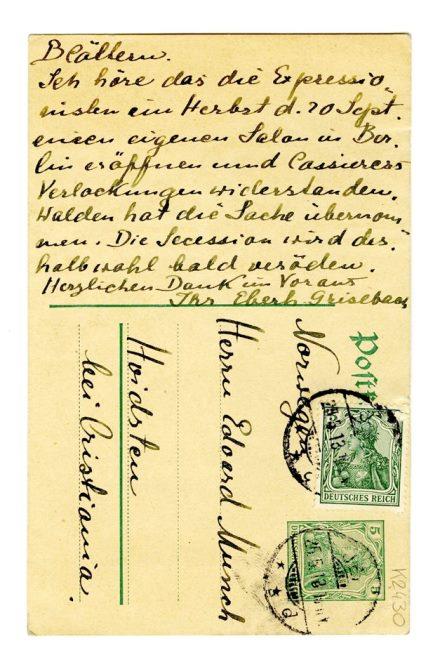 Blättern.
Ich höre das die Expressio-
nisten ein Herbst d. 20 Sept.
einen eigenen Salon in Ber-
lin eröffnen und Cassierers
Verlockungen widerstanden.
Walden hat die Sache übernom-
men. Die Secession wird des-
halb wohl bald veröden.
Herzlichen Dank im Voraus
Ihr Eberh Grisebach
Postk
Herrn Edvard Munch
Hvidsten
bei Cristiania.
Norwegen
DEUTSCHES REICH
5
K2430